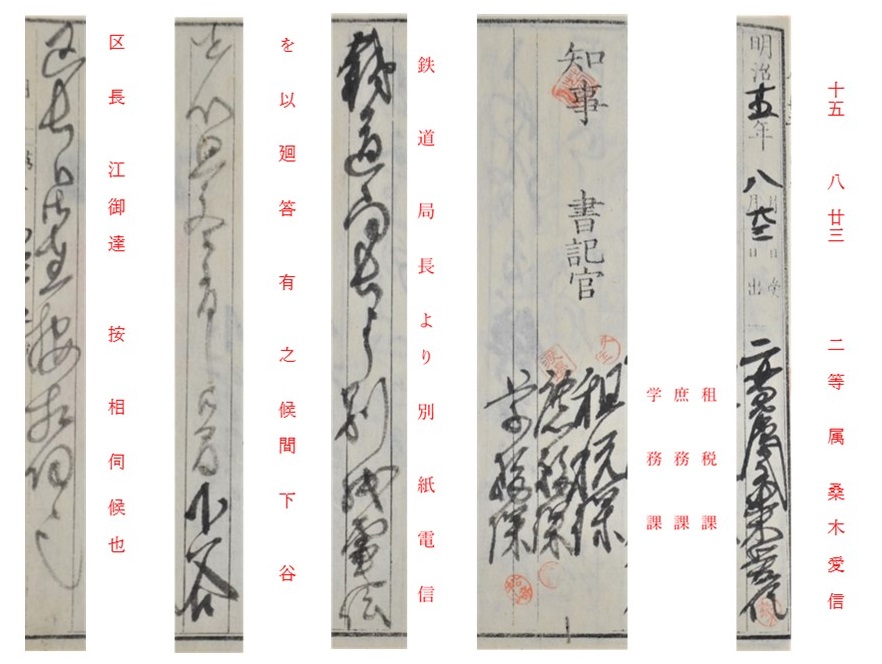 十五 八 廿三 二等属 桑木愛信
明治十五年 八月廿三日出 二等属桑木愛信
租税課
庶務課
学務課
知事 書記官
租税課
庶務課
学務課
鉄道局長より別紙電信
鉄道局長より別紙電信
を以廻答有之候間下谷
を以廻答有之候間下谷
区長江御達按相伺候也
区長江御達按相伺候也